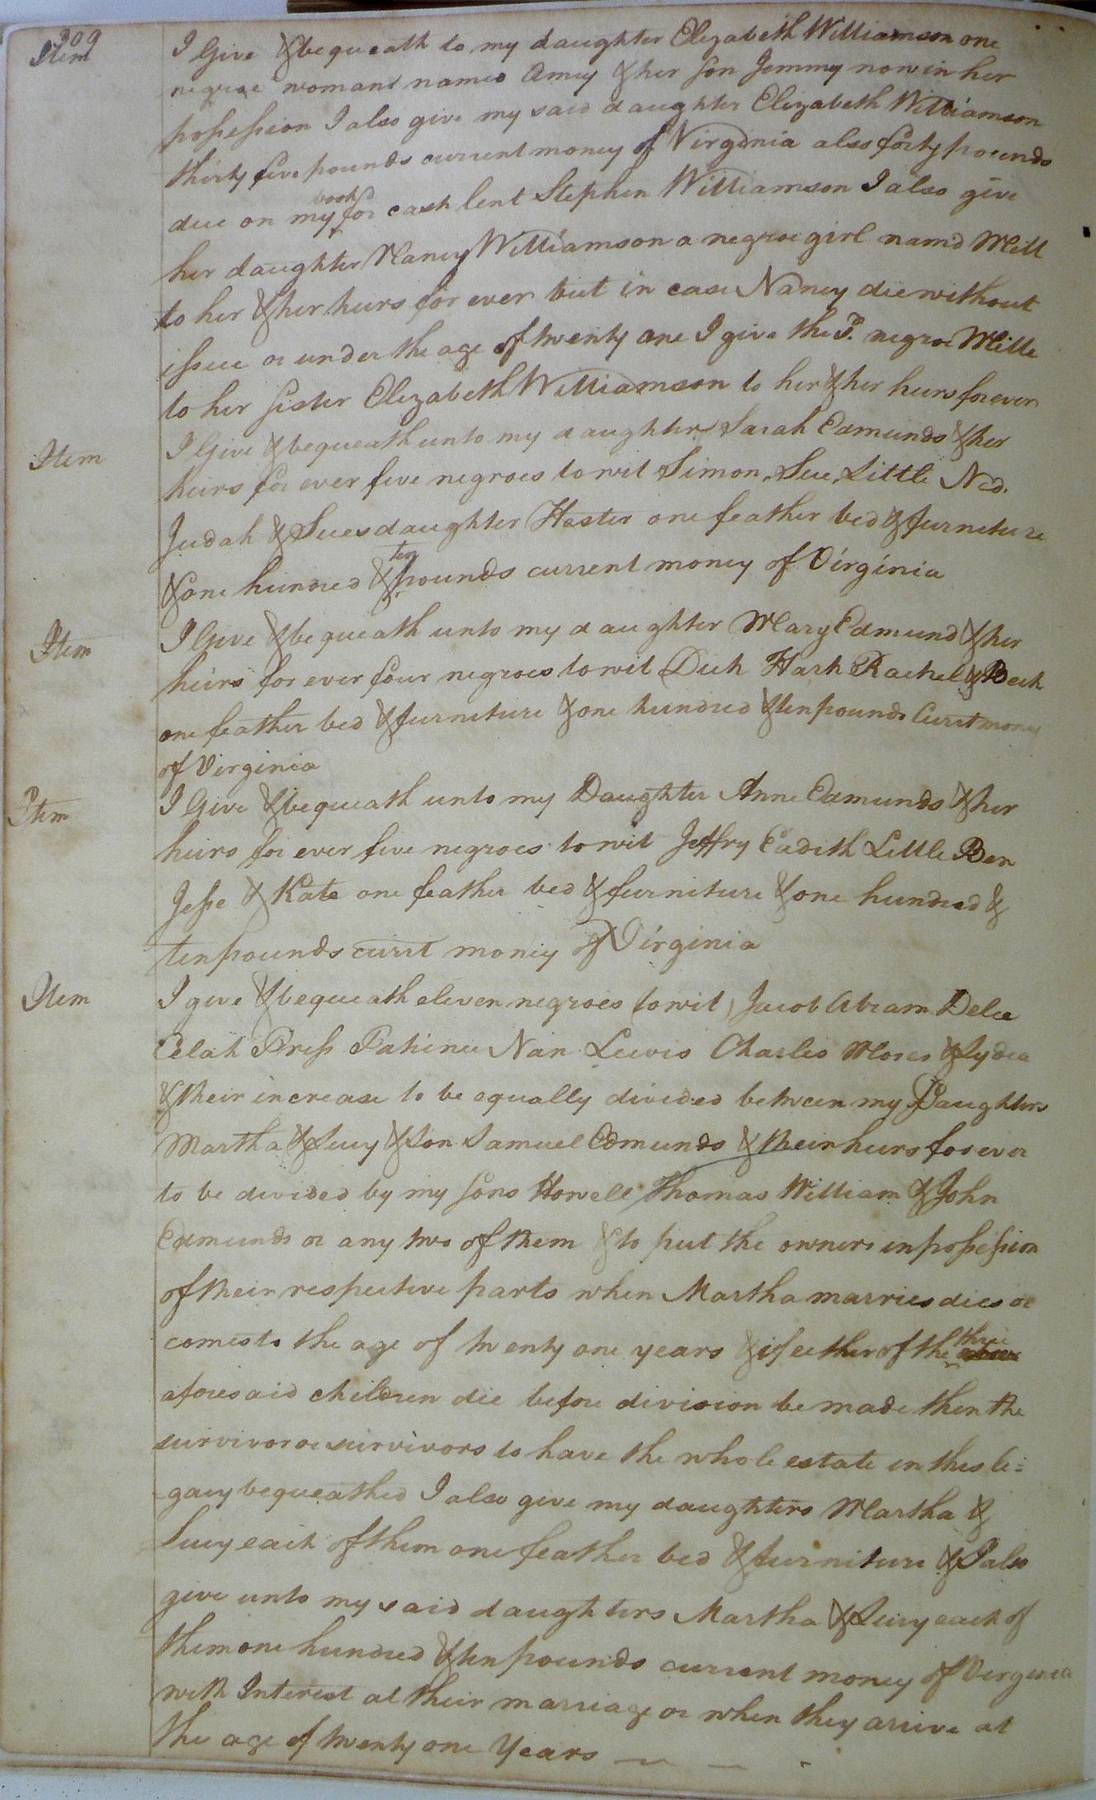 309
Item I Give & bequeath to my daughter Elizabeth Williamson one
negroe woman named Amey & her son Jemmy now in her
possession I also give my said daughter Elizabeth Williamson
thirty five pounds current money of Virginia also forty pounds
due on my book for cash lent Stephen Williamson I also give
her daughter Nancy Williamson a negroe girl namd Mill
to her & her heirs for ever but in case Nancy die without
issue or under the age of twenty one I give the Sd. negroe Mille
to her sister Elizabeth Williamson to her & her heirs forever
Item I Give & bequeath unto my daughter Sarah Edmunds & her
heirs for ever five negroes to wit Simon, Sue, Little Ned.
Judah & Sues daughter Hester one feather bed & furniture
& one hundred & ten pounds current money of Virginia
Item I Give & bequeath unto my daughter Mary Edmund & her
heirs for ever four negroes to wit Dick Hark Rachel & Beck
one feather bed & furniture & one hundred & ten pounds Currt money
of Virginia
Item I Give & bequeath unto my Daughter Anne Edmunds & her
heirs for ever five negroes to wit Jeffry Eadith Little Ben
Jesse & Kate one feather bed & furniture & one hundred &
ten pounds currt money of Virginia
Item I give & bequeath eleven negroes (to wit) Jacob Abram
Press Nan Lewis Charles Moses & Lydia
& their increase to be equally divided between my Daughters
Martha & Lucy & Son Samuel Edmunds & their heirs forever
to be divided by my sons Howell Thomas William & John
Edmunds or any two of them & to put the owners in possession
of their respective parts when Martha marries dies or
comes to the age of twenty one years & if eether of the three
aforesaid children die before division be made then the
survivor or survivors to have the whole estate in this le=
gacy bequeathed I also give my daughters Martha &
Lucy each of them one feather bed & furniture & I also
give unto my said daughters Martha & Lucy each of
them one hundred & ten pounds current money of Virginia
with Interest at their marriage or when they arrive at
the age of twenty one Years